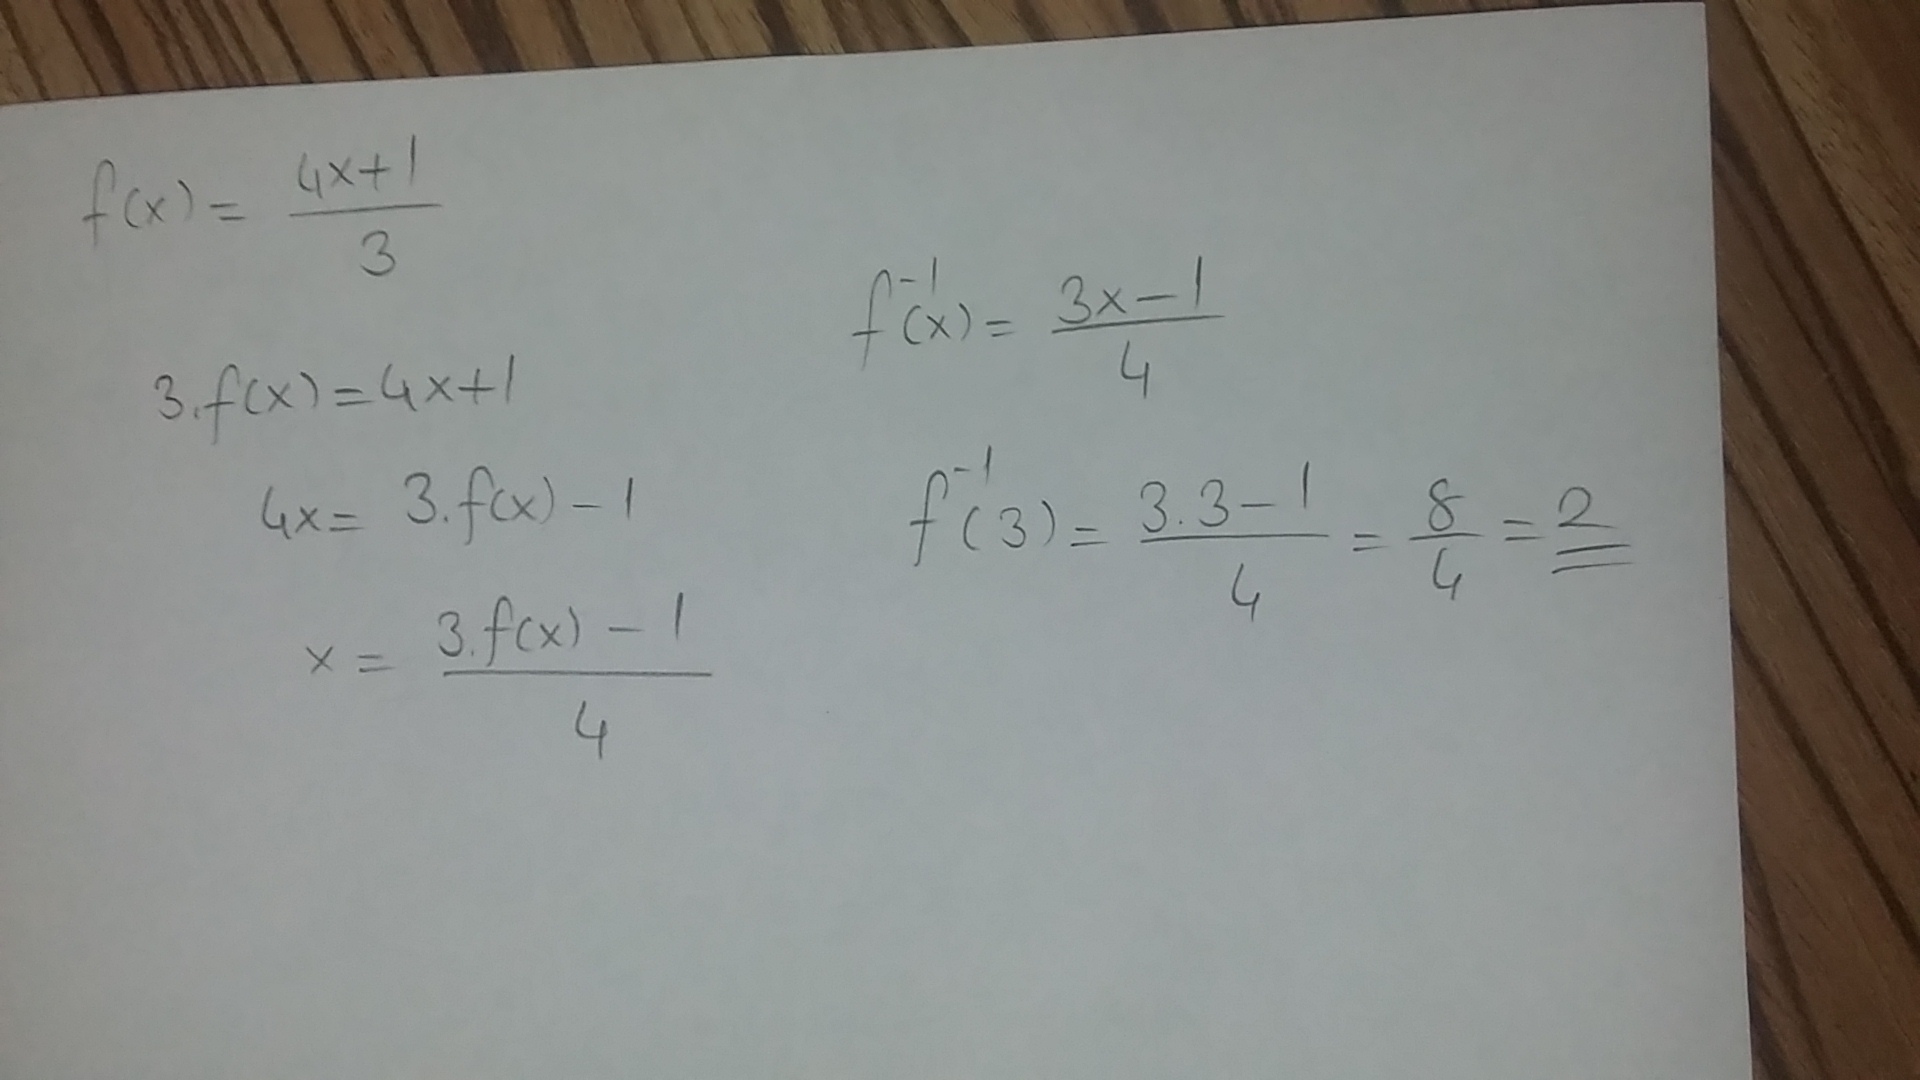 f(x) = (4x+1)/3
3.f(x) = 4x+1
4x = 3.f(x) - 1
x = (3.f(x) - 1)/4
f⁻¹(x) = (3x-1)/4
f⁻¹(3) = (3.3-1)/4 = 8/4 = 2